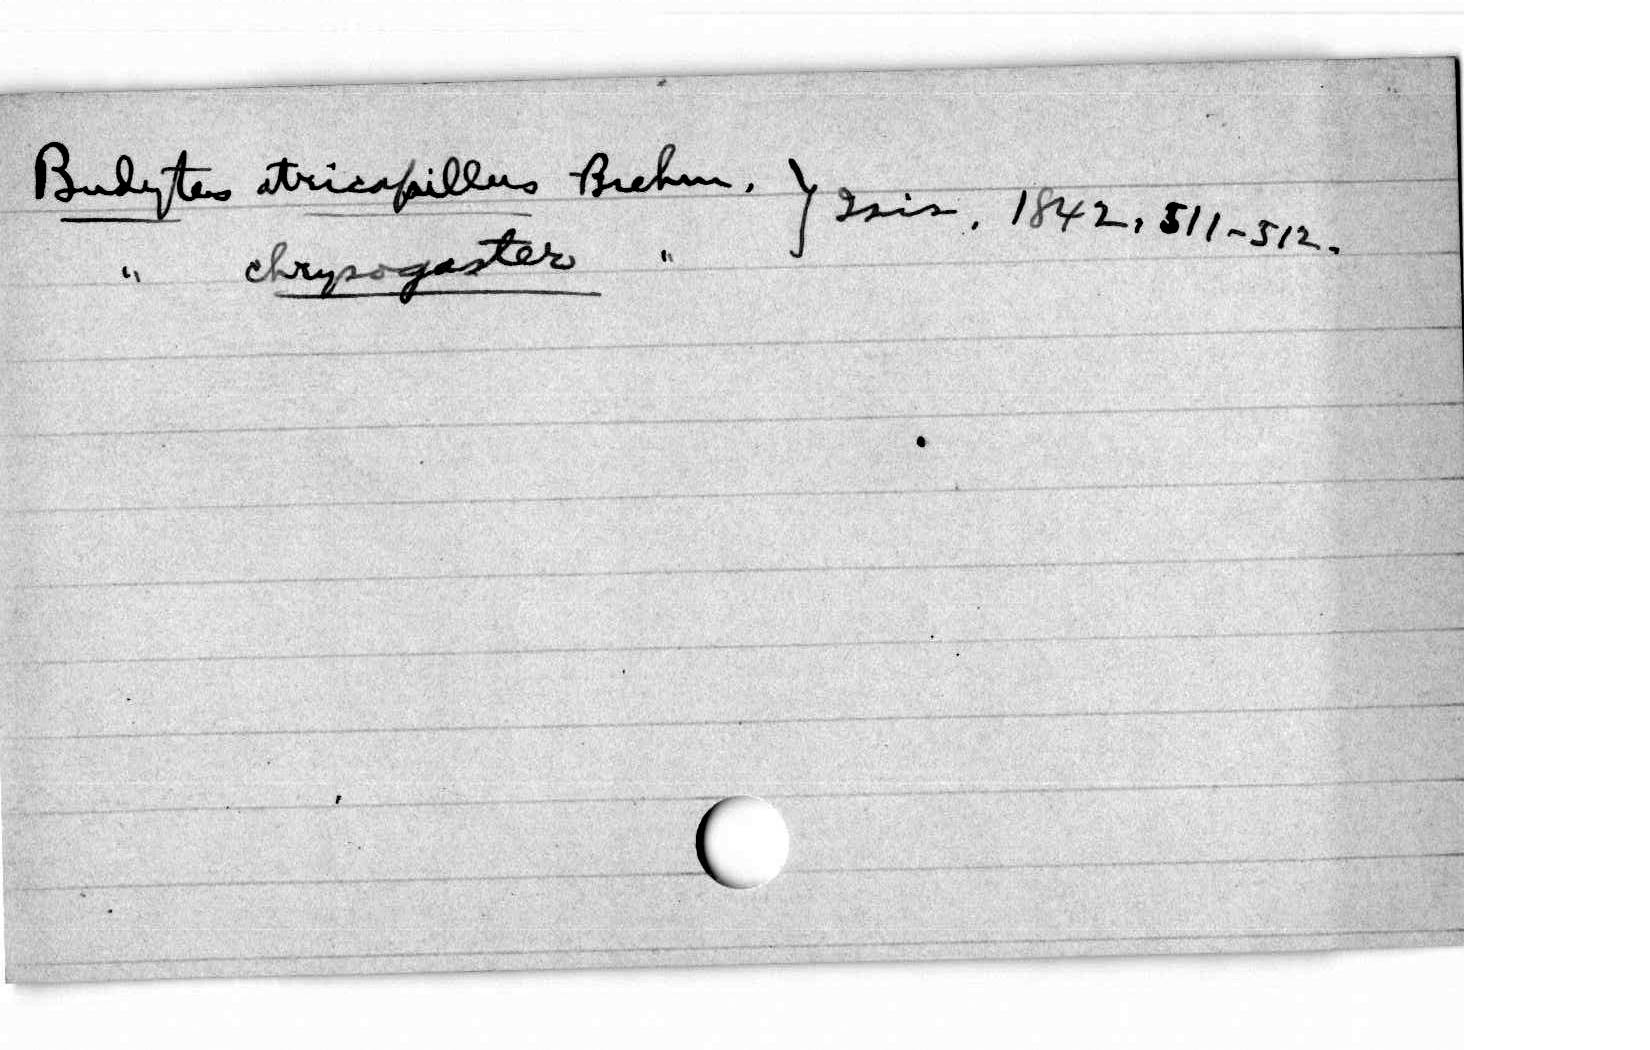 Budytes atricapillus Brehm. } Isis, 1842, 511-512.
" chrysogaster "